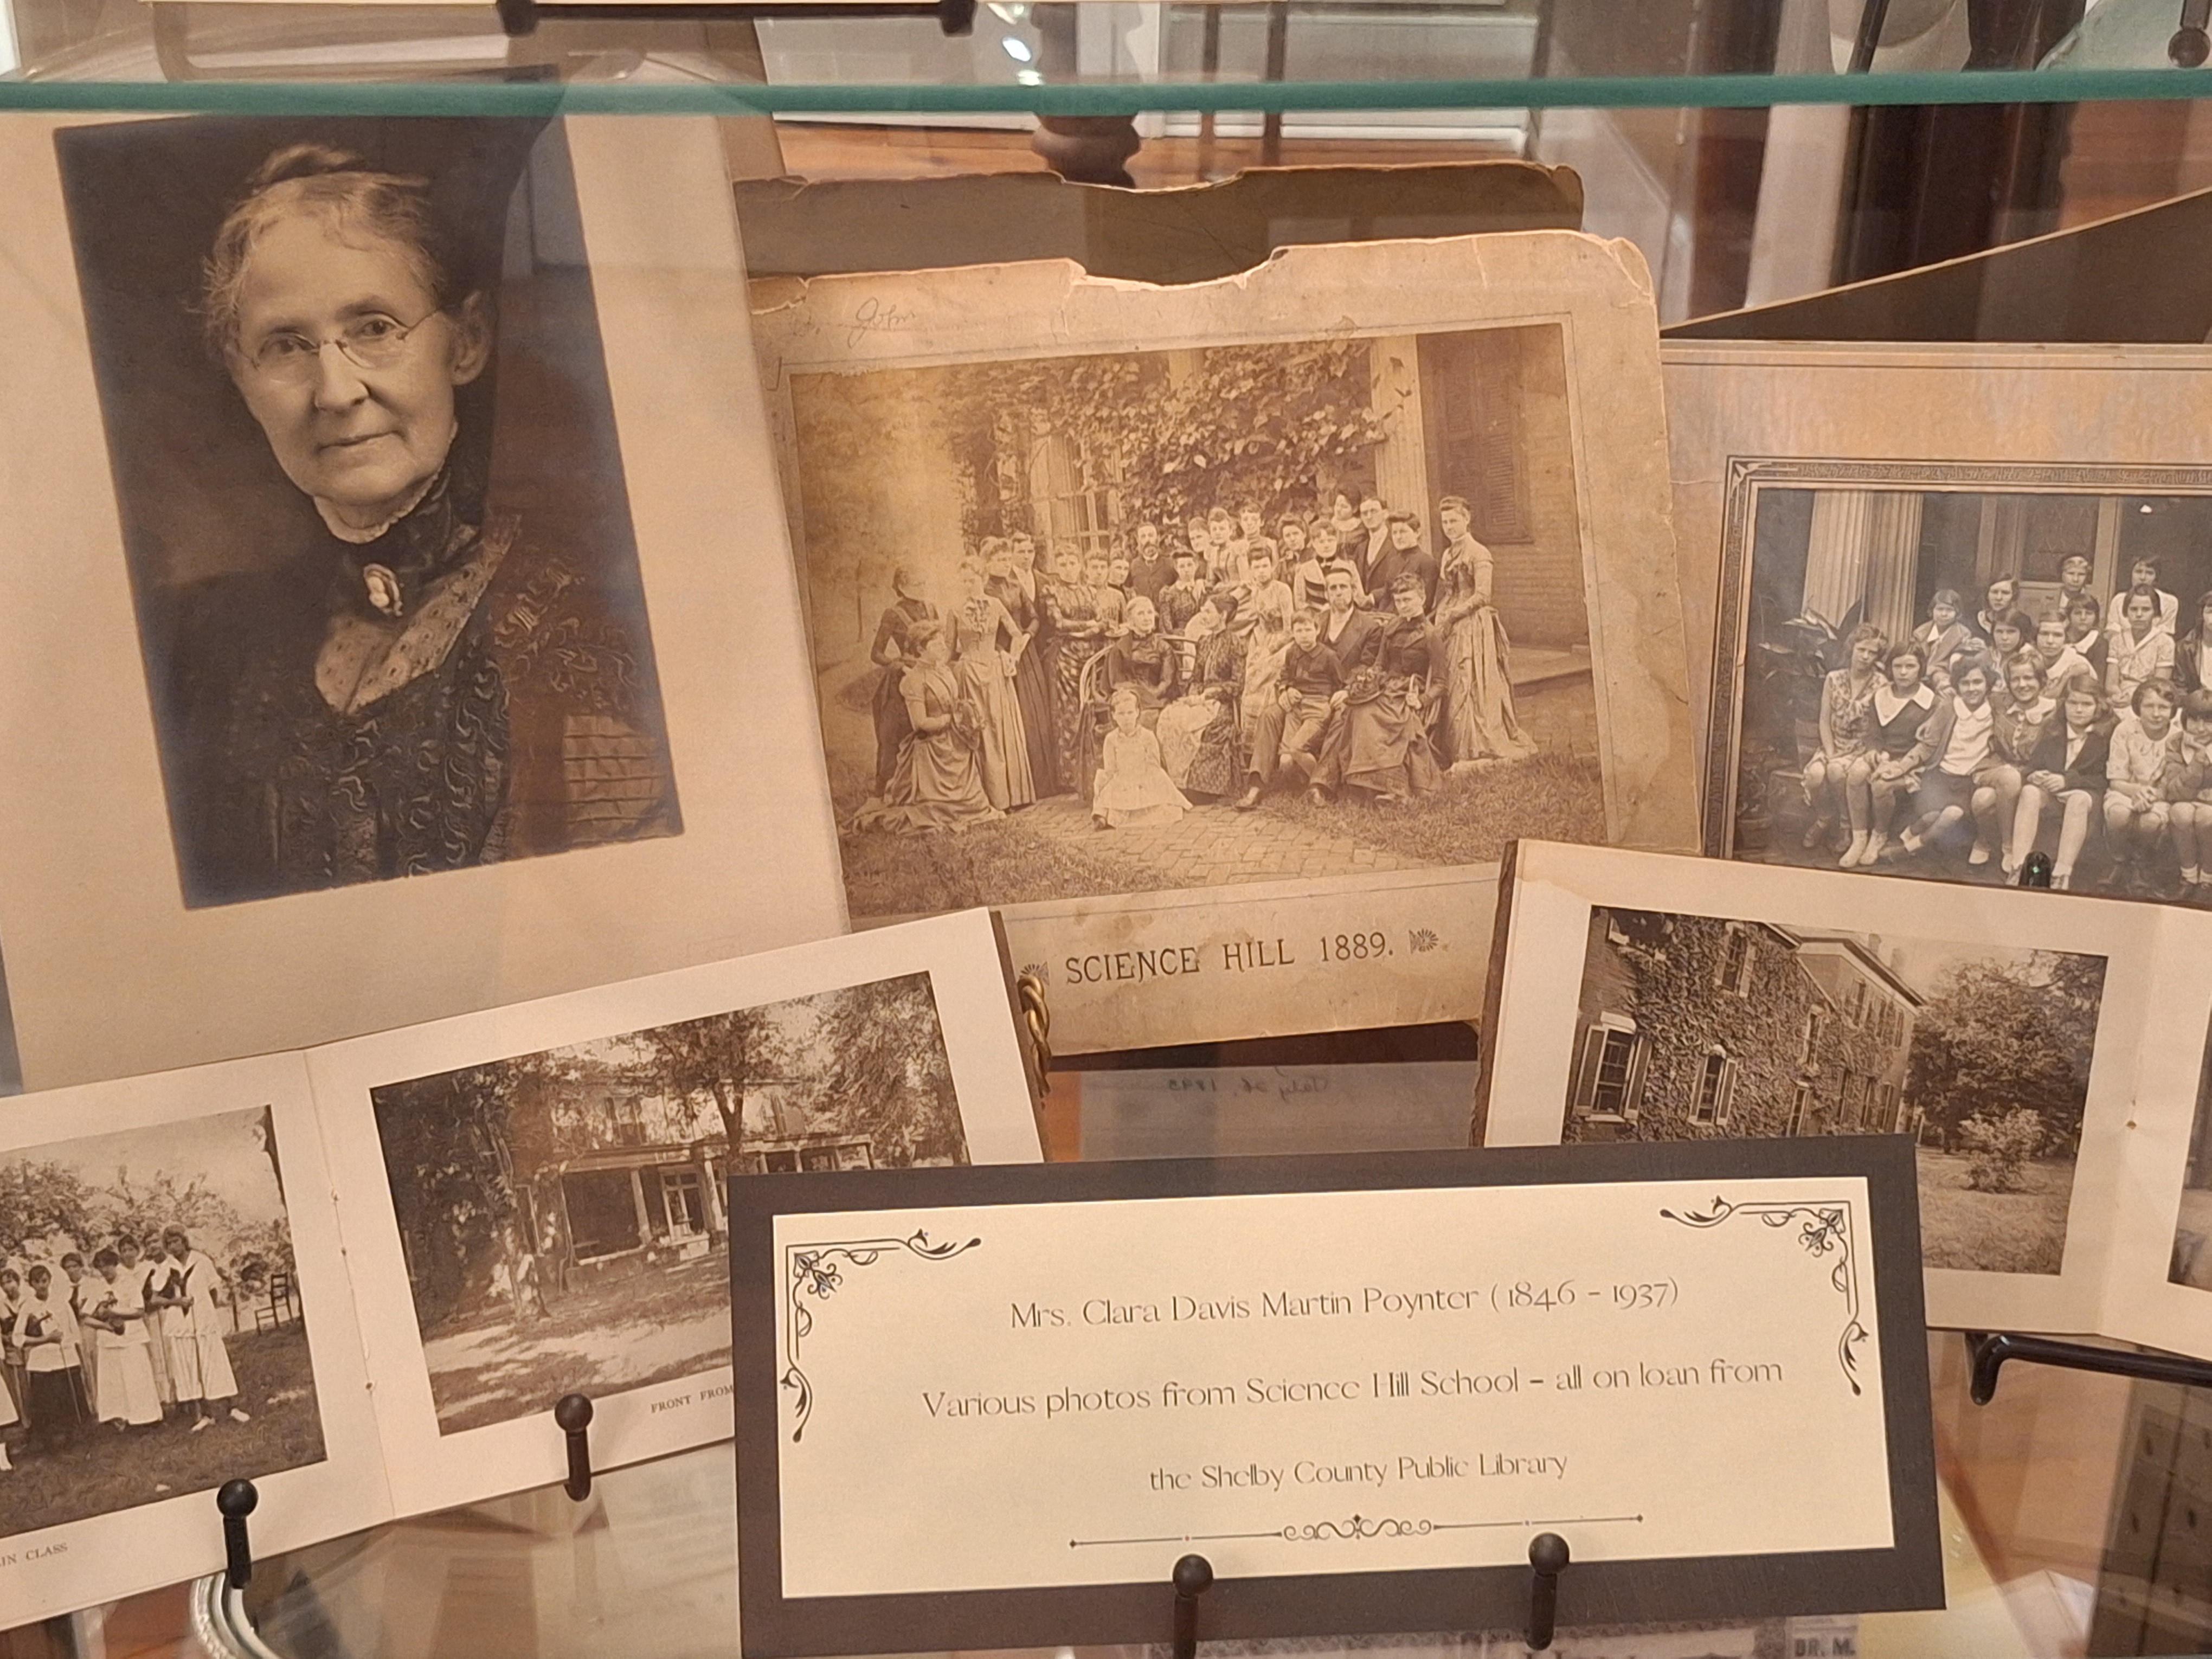 John
SCIENCE HILL 1889.
FRONT FROM
IN CLASS
Mrs. Clara Davis Martin Poynter (1846 - 1937)
Various photos from Science Hill School - all on loan from
the Shelby County Public Library
DR. M.